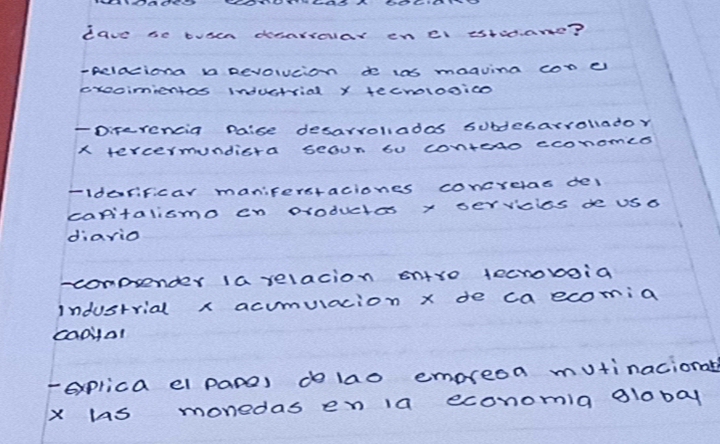 economicas x sociales
¿que se busca desarrollar en el estudiane?
-Relaciona la Revolucion de las maquina con el
crecimientos Industrial x tecnologico
-Diferencia Paise desarrollados subdesarrollador
x tercermundista segun su contexo economico
-Identificar maniferstaciones concretas del
capitalismo en productos x servicios de uso
diario
-comprender la relacion entre tecnologia
industrial x acumulacion x de ca ecomia
capital
-explica el papel de las empresa mutinacional
x las monedas en la economia global